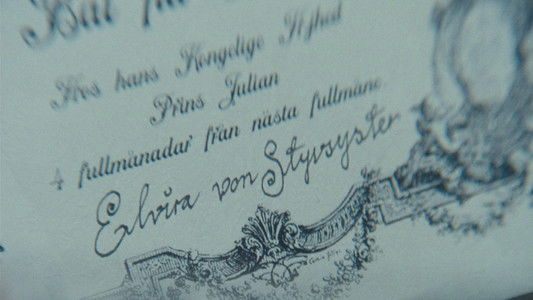 Bal för
Hos hans Kongelige Højhed
Prins Julian
4 fullmånadar från nästa fullmåne.
Elvira von Styvsyster